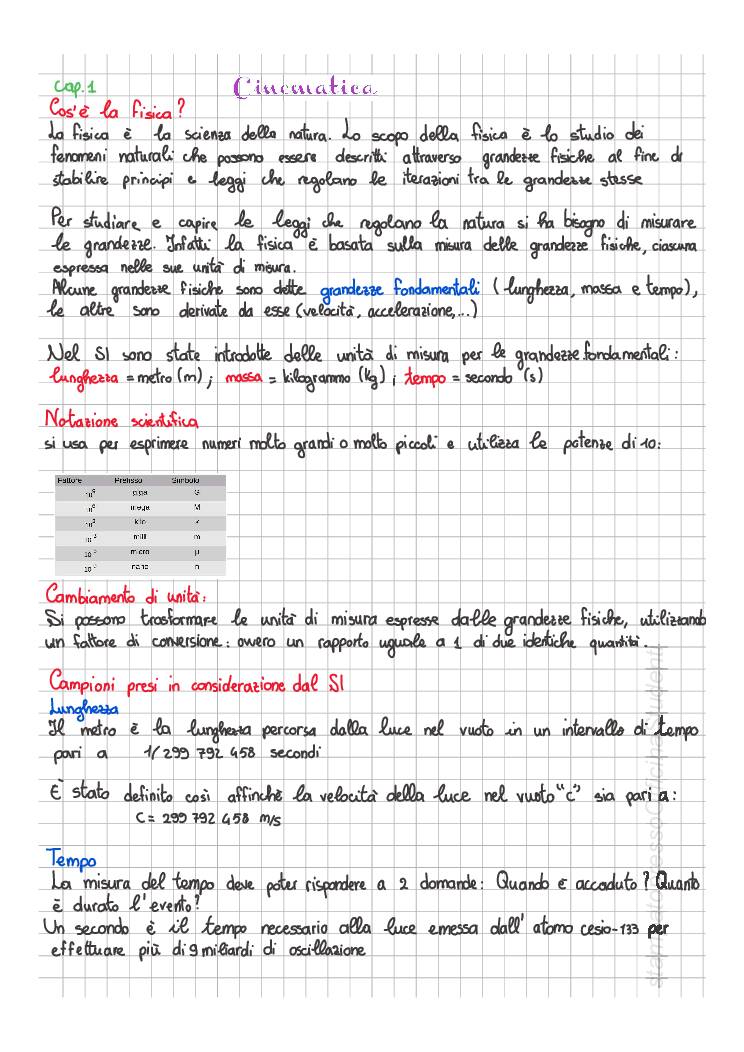 Cap.1
Cinematica
Cos'è la fisica?
La fisica è la scienza della natura. Lo scopo della fisica è lo studio dei
fenomeni naturali che possono essere descritti attraverso grandezze fisiche al fine di
stabilire principi e leggi che regolano le iterazioni tra le grandezze stesse
Per studiare e capire le leggi che regolano la natura si ha bisogno di misurare
le grandezze. Infatti la fisica è basata sulla misura delle grandezze fisiche, ciascuna
espressa nelle sue unità di misura.
Alcune grandezze fisiche sono dette grandezze fondamentali (lunghezza, massa e tempo),
le altre sono derivate da esse (velocità, accelerazione,...)
Nel SI sono state introdotte delle unità di misura per le grandezze fondamentali:
lunghezza = metro (m); massa = kilogrammo (kg); tempo = secondo (s)
Notazione scientifica
si usa per esprimere numeri molto grandi o molto piccoli e utilizza le potenze di 10:
Fattore Prefisso Simbolo
giga G
10⁶ mega M
10³ kilo
milli m
micro µ
nano n
Cambiamento di unità:
Si possono trasformare le unità di misura espresse dalle grandezze fisiche, utilizzando
un fattore di conversione: ovvero un rapporto uguale a 1 di due identiche quantità.
Campioni presi in considerazione dal SI
Lunghezza
Il metro è la lunghezza percorsa dalla luce nel vuoto in un intervallo di tempo
pari a 1/299 792 458 secondi
È stato definito così affinchè la velocità della luce nel vuoto "c" sia pari a:
C = 299 792 458 m/s
Tempo
La misura del tempo deve poter rispondere a 2 domande: Quando è accaduto? Quanto
è durato l'evento?
Un secondo è il tempo necessario alla luce emessa dall'atomo cesio-133 per
effettuare più di 9 miliardi di oscillazione